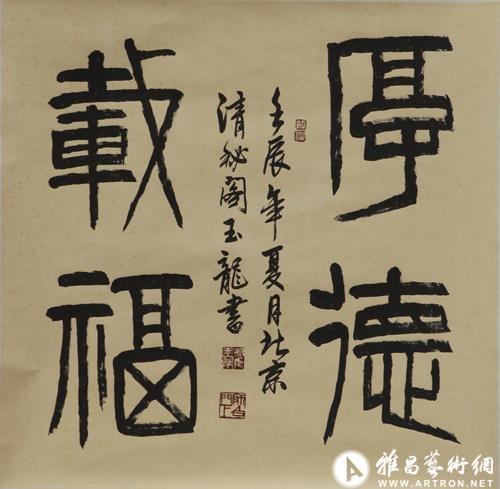 厚德
載福
壬辰年夏月北京
清秘阁玉龍書
雅昌藝術網
WWW.ARTRON.NET